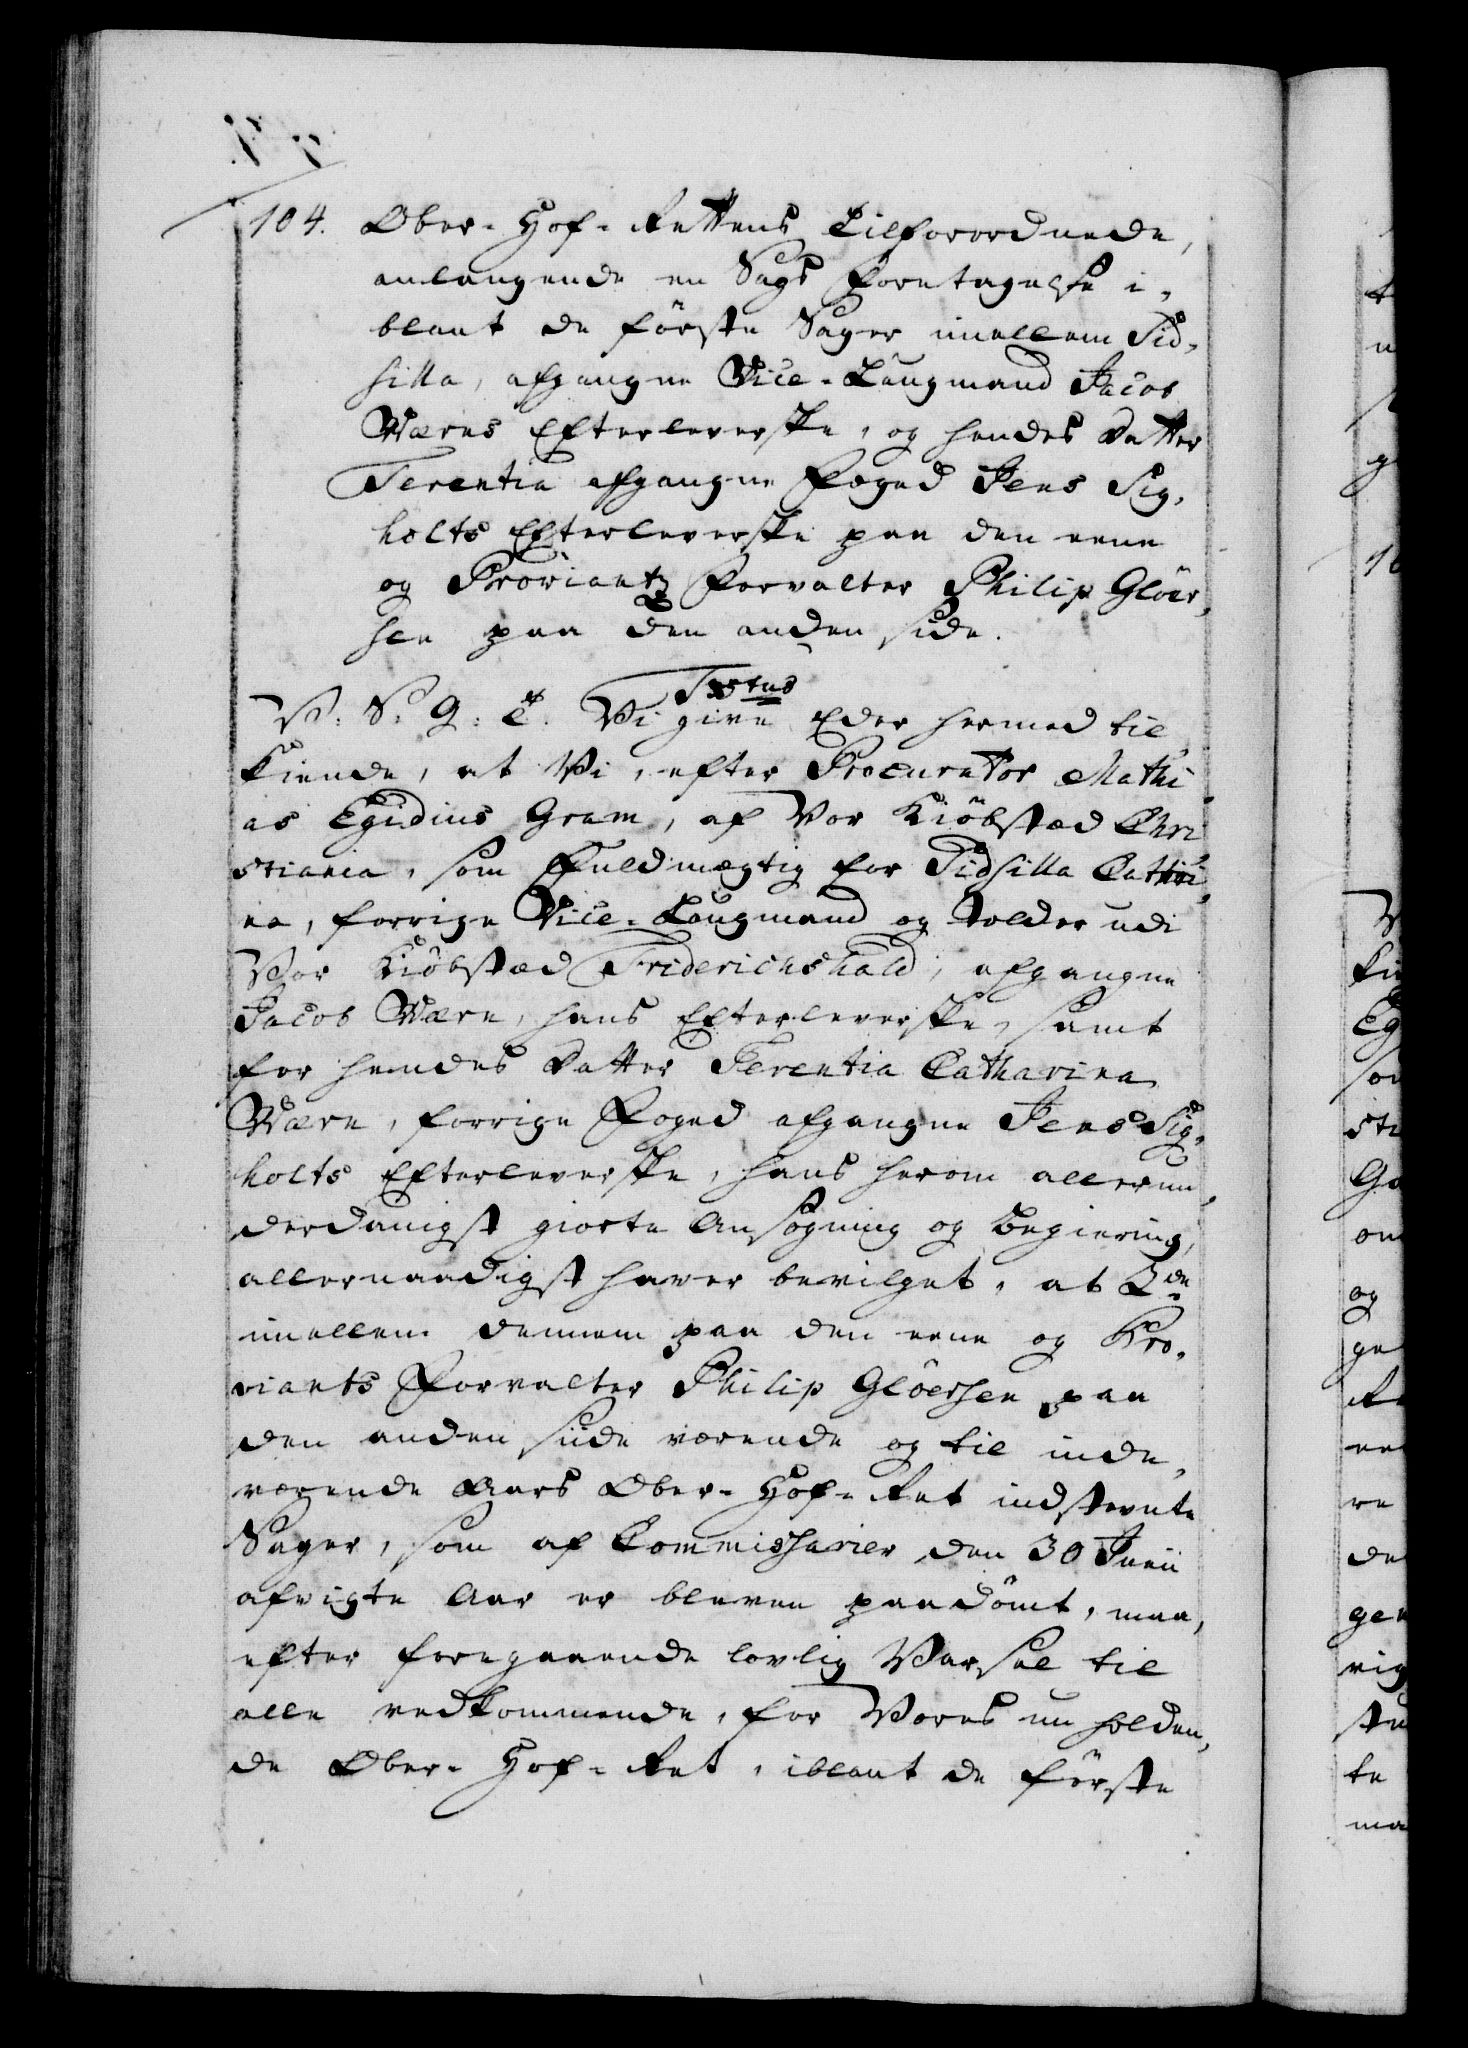 104. Ober-Hof-Rettens Tilforordnede,
anlangende en Sags foretagelse i-
blant de förste Sager imellem Sid-
silla, afgangne Vice-Laugmand Jacob
Wærns Efterleverske, og hendes Datter
Terentia afgangne Foged Jens Sig-
holts Efterleverske paa den eene
og Proviantz Forvalter Philip Glöer-
sen paa den anden side.
Textus
V. S. G. T. Vi give Eder hermed til
kiende, at Vi, efter Procurator Mathi
as Egidius Gram, af Vor Kiöbstæd Chri
stiania, som Fuldmægtig for Sidsilla Cathri
na, forrige Vice-Laugmand og Tolder udi
Vor Kiöbstæd Friderichshald, afgangne
Jacob Wærn, hans Efterleverske, samt
for hendes Datter Terentia Catharina
Wærn, forrige Foged afgangne Jens Sig-
holts Efterleverske, hans herom allerun-
derdanigst giorte Ansögning og Begiering,
allernaadigst haver bevilget, at 2de
imellem dennem paa den eene og Pro-
viants Forvalter Philip Glöersen paa
den anden siide værende og til inde-
værende Aars Ober-Hof-Ret indstevnte
Sager, som af Commissarier den 30 Junii
afvigte Aar er bleven paadömt, maa,
efter foregaaende lovlig Varsel til
alle vedkommende, for Vores nu holden-
de Ober-Hof-Ret, iblant de förste